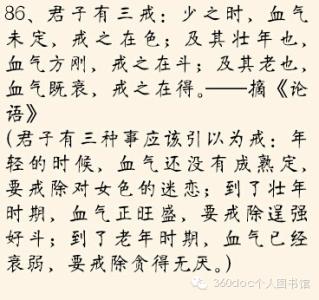 86、君子有三戒：少之时，血气
未定，戒之在色；及其壮年也，
血气方刚，戒之在斗；及其老也，
血气既衰，戒之在得。——摘《论
语》
(君子有三种事应该引以为戒：年
轻的时候，血气还没有成熟定，
要戒除对女色的迷恋；到了壮年
时期，血气正旺盛，要戒除逞强
好斗；到了老年时期，血气已经
衰弱，要戒除贪得无厌。)
360doc个人图书馆